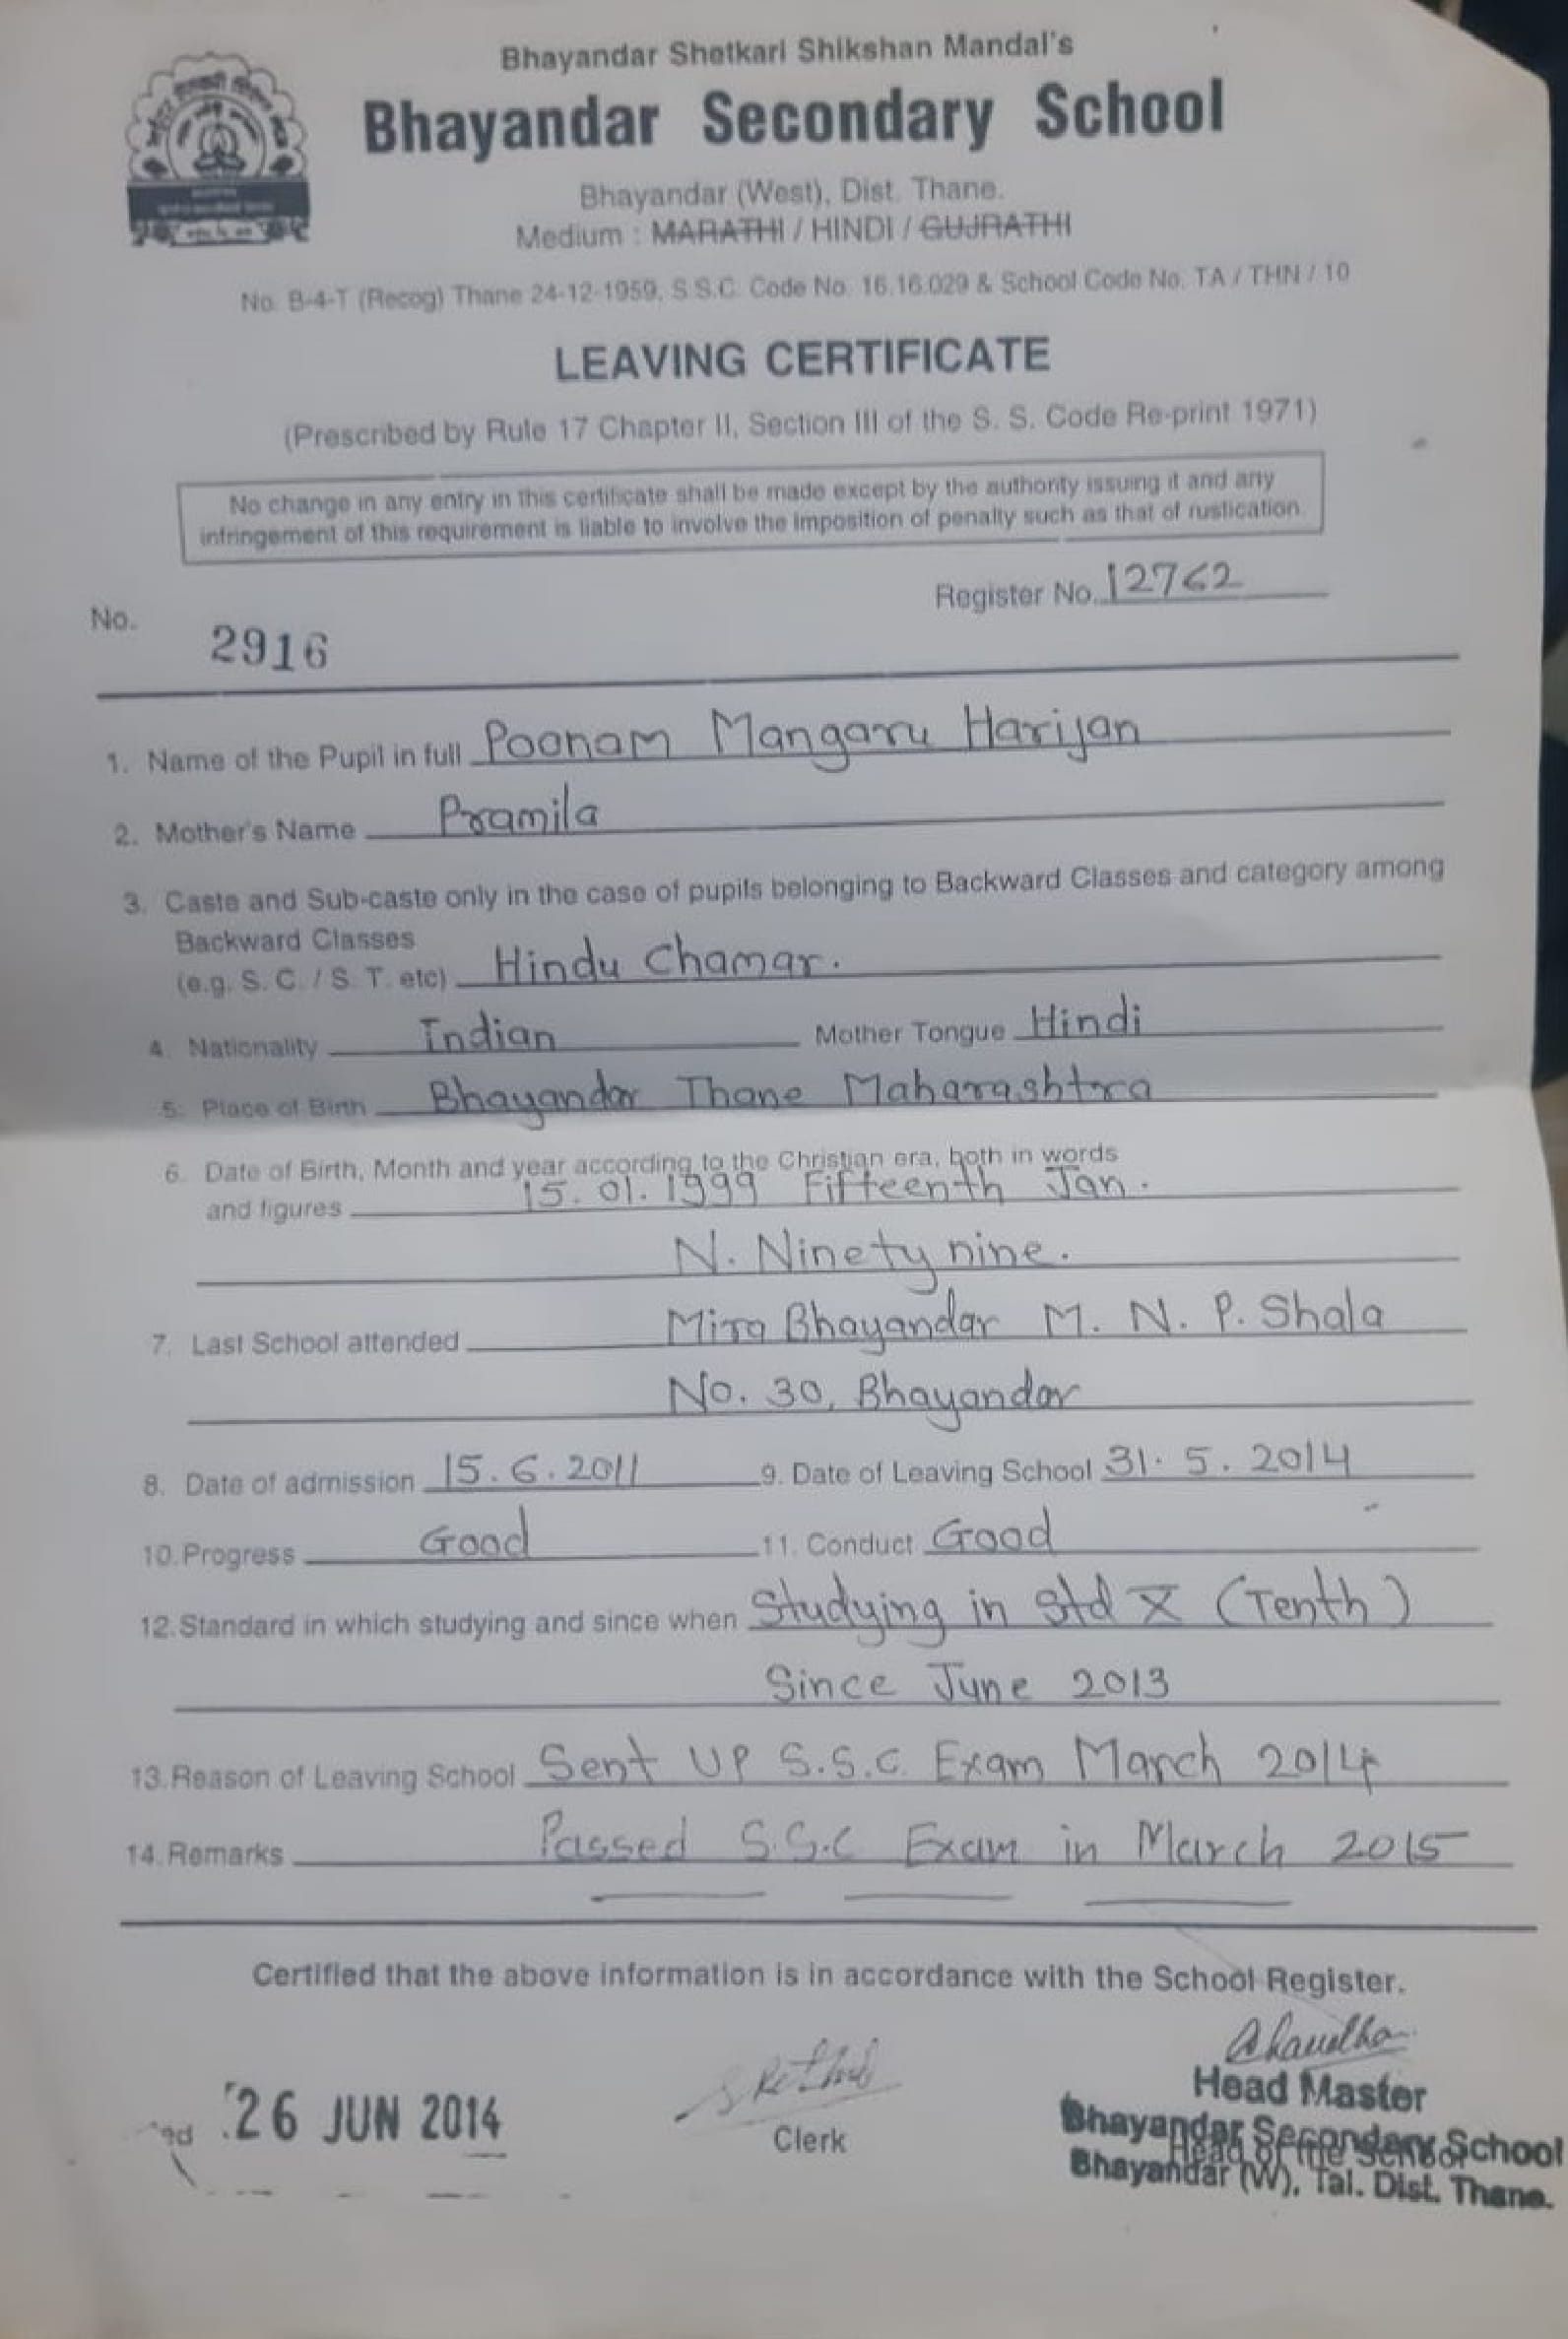 Bhayandar Shetkari Shikshan Mandal's
Bhayandar Secondary School
Bhayandar (West), Dist. Thane.
Medium : MARATHI / HINDI / GUJRATHI
No. B-4-T (Recog) Thane 24-12-1959, S.S.C. Code No. 16.16.029 & School Code No. TA / THN / 10
LEAVING CERTIFICATE
(Prescribed by Rule 17 Chapter II, Section III of the S. S. Code Re-print 1971)
No change in any entry in this certificate shall be made except by the authority issuing it and any
infringement of this requirement is liable to involve the imposition of penalty such as that of rustication.
Register No. 12762
No. 2916
1. Name of the Pupil in full Poonam Mangaru Harijan
2. Mother's Name Pramila
3. Caste and Sub-caste only in the case of pupils belonging to Backward Classes and category among
Backward Classes
(e.g. S. C. / S. T. etc) Hindu Chamar.
4. Nationality Indian Mother Tongue Hindi
5. Place of Birth Bhayandar Thane Maharashtra
6. Date of Birth, Month and year according to the Christian era, both in words
and figures 15.01.1999 Fifteenth Jan.
N. Ninety nine.
7. Last School attended Mira Bhayandar M. N. P. Shala
No. 30, Bhayandar
8. Date of admission 15.6.2011 9. Date of Leaving School 31.5.2014
10. Progress Good 11. Conduct Good
12. Standard in which studying and since when Studying in std X (Tenth)
Since June 2013
13. Reason of Leaving School Sent UP S.S.C. Exam March 2014
14. Remarks Passed S.S.C Exam in March 2015
Certified that the above information is in accordance with the School Register.
26 JUN 2014
Clerk
Head Master
Bhayandar Secondary School
Head of the School
Bhayandar (W), Tal. Dist. Thane.